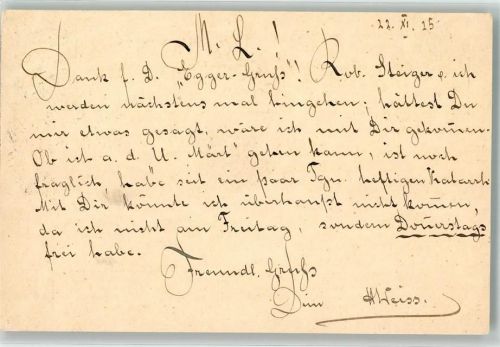 22. XI. 15.
M. L.!
Dank f. D. "Egger-Gruss"! Rob. Steiger & ich
werden nächstens mal hingehen; hättest Du
mir etwas gesagt, wäre ich mit Dir gekommen.
Ob ich a. d. U. Märt' gehen kann, ist noch
fraglich, habe seit ein paar Tgn. heftigen Katarrh.
Mit Dir könnte ich überhaupt nicht kommen,
da ich nicht am Freitag, sondern Donnerstags
frei habe.
Freundl. Gruss
Dein HWeiss.